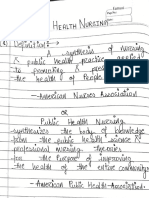 HEALTH NURSING
Definition :- →
synthesis of nursing
& public health practice applied
to promoting & preserving
the health of People.
- American Nurses Association
OR
Public Health Nursing
synthesizes the body of knowledge
from the public health science &
professional nursing theories
for the Purpose of improving
the health of the entire community
- American Public Health Association.